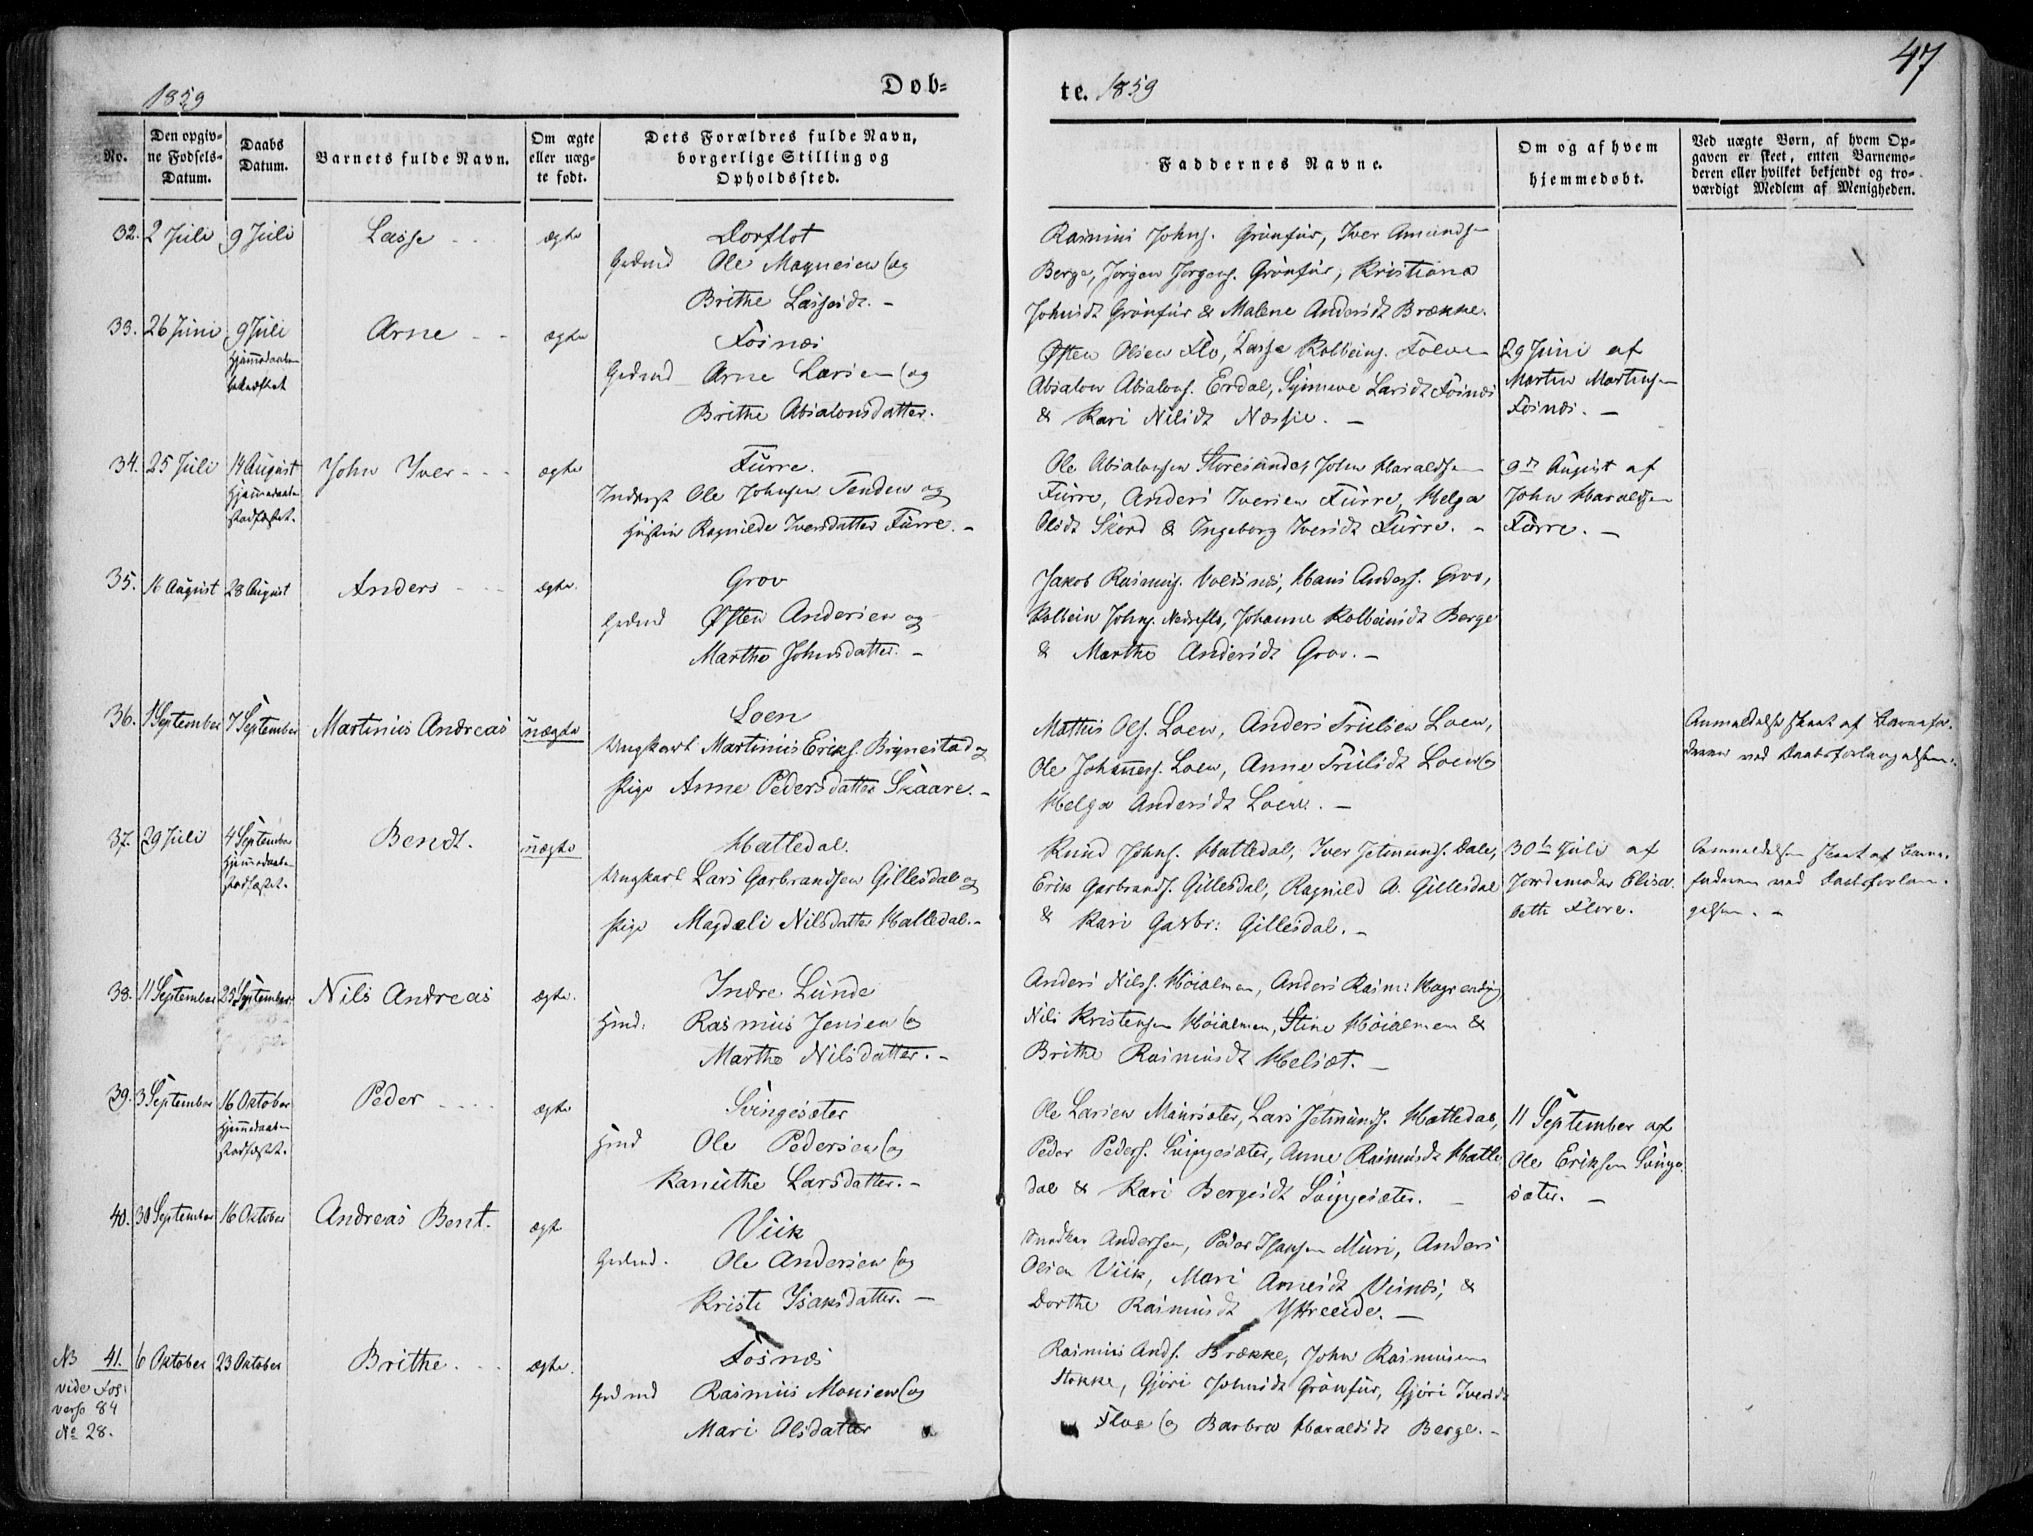 47
1859 Døb=
te. 1859
No.
Den opgiv-
ne Fødsels-
Datum.
Daabs
Datum.
Barnets fulde Navn.
Om ægte
eller uæg-
te født.
Dets Forældres fulde Navn,
borgerlige Stilling og
Opholdssted.
Faddernes Navne.
Om og af hvem
hjemmedøbt.
Ved uægte Børn, af hvem Op-
gaven er skeet, enten Barnemo-
deren eller hvilket bekjendt og tro-
værdigt Medlem af Menigheden.
32. 2 Juli 9 Juli Lasse ægte
Dorflot
Ole Magnesen og
Brithe Lassesdt.
Rasmus Johns. Grönfur, Iver Amunds
Berge, Jörgen Jörgens. Grönfur, Kristiana
Johnsdt Grönfur & Malene Andersdt Brække.
33. 26 Juni 9 Juli
Hjemmedaaben
Arne ægte
Fosnæs
Arne Larsen og
Brithe Absalonsdatter.
Østen Olsen Flo, Lasse Kolbeins. Folven
Absalon Absalons. Erdal, Synneve Larsdt Fosnæs
& Kari Nilsdt Næsje.
29 Juni af
Morten Mortensen
Fosnæs.
34. 25 Juli 14 August
Hjemmedaaben
stadfæstet.
John Iver ægte
Furre.
Inderst Ole Johnsen Tenden og
Hustru Ragnilde Iversdatter Furre.
Ole Absalonsen Storesunde, John Haraldsen
Furre, Anders Iversen Furre, Helga
Olsdt Skord & Ingeborg Iversdt Furre.
9de August af
John Haraldsen
Furre.
35. 16 August 28 August Anders ægte.
Grov
Østen Andersen og
Marthe Johnsdatter.
Jakob Rasmus. Voldsnæs, Hans Anders. Grov,
Kolbein Johns. Nedreflo, Johanne Kolbeinsdt Berge
& Marthe Andersdt Grov.
36. 1 September 7 September Martinus Andreas uægte
Loen
Ungkarl Martinus Eriks. Brynestad og
Pige Anne Pedersdatter Skaare.
Mathis Ols. Loen, Anders Trulsen Loen,
Ole Johanness. Loen, Anne Trulsdt Loen og
Helga Andersdt Loen.
Anmeldelse skeet af Barnefa-
deren ved Daabsforlangelsen.
37. 29 Juli 4 September
Hjemmedaaben
stadfæstet.
Bendt. uægte
Hatledal.
Ungkarl Lars Garbrandsen Gillesdal og
Pige Magdeli Nilsdatter Hatledal.
Knud Johns. Hatledal, Iver Jetmunds. Dale,
Erik Garbrands. Gillesdal, Ragnild A. Gillesdal
& Kari Garbr: Gillesdal.
30te Juli af
Jordemoder Elisa-
beth Flore.
Anmeldelsen skeet af Barne-
faderen ved Daabsforlan-
gelsen.
38. 11 September 25 September Nils Andreas ægte.
Indre Lunde
Hmd: Rasmus Jensen og
Marthe Nilsdatter.
Anders Nilss. Höialmen, Anders Rasm:
Nils Kristensen Höialmen, Stine Höialmen &
Brithe Rasmusdt Helset.
39. 3 September 16 Oktober
Hjemmedaaben
stadfæstet.
Peder ægte
Svingesæter
Hmd Ole Pedersen og
Kanuthe Larsdatter.
Ole Larsen Maursæter, Lars Jetmunds. Hatledal,
Peder Peders. Svingesæter, Anne Rasmusdt Hatle-
dal & Kari Bergesdt Svingesæter.
11 September af
Ole Eriksen Svinge-
sæter.
40. 30 September 16 Oktober Andreas Bent. ægte
Viik
Ole Andersen og
Kriste Isaksdatter.
Andersen, Peder Isaksen Muri, Anders
Olsen Viik, Mari Arnesdt Visnæs, &
Dorthe Rasmusdt Yttreeide.
NB 41. 6 Oktober 23 Oktober Brithe. ægte.
vide Fol:
verso 84
No 28.
Fosnæs
Rasmus Monsen og
Mari Olsdatter
Rasmus Ands. Brække, John Rasmusen
Stokke, Gjöri Johnsdt Grönfur, Gjöri Iversdt
Floe og Barbra Haraldsdt Berge.